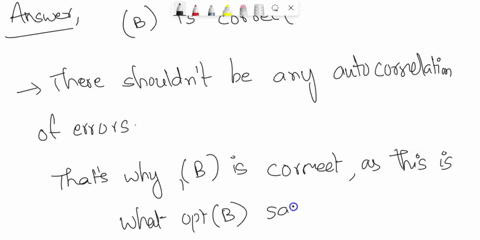 Answer,
(B) is correct
→ There shouldn't be any autocorrelation
of errors.
That's why, (B) is correct, as this is
what opt (B) sa